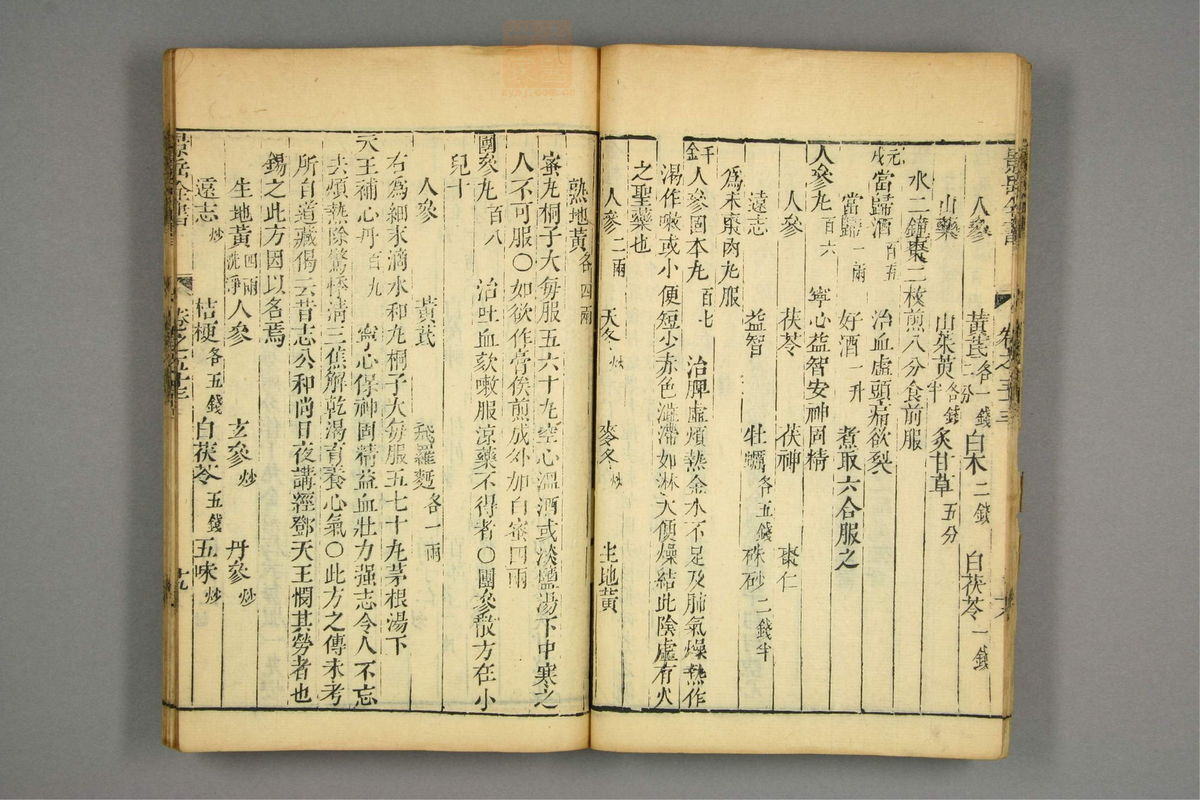 人參 黃芪各一錢二分 白朮二錢 白茯苓一錢
山藥 山茱萸各錢半 炙甘草五分
水二鐘棗二枚煎八分食前服
元戎當歸酒百五 治血虛頭痛欲裂
當歸一兩 好酒一升 煮取六合服之
人參丸百六 寧心益智安神固精
人參 茯苓 茯神 棗仁
遠志 益智 牡蠣各五錢 硃砂二錢半
為末棗肉丸服
千金人參固本丸百七 治脾虛煩熱金水不足及肺氣燥熱作
渴作嗽或小便短少赤色澁滯如淋大便燥結此陰虛有火
之聖藥也
人參二兩 天冬炒 麥冬炒 生地黃
熟地黃各四兩
蜜丸桐子大每服五六十丸空心溫酒或淡鹽湯下中寒之
人不可服〇如欲作膏俟煎成外加白蜜四兩
團參丸百八 治吐血欬嗽服涼藥不得者〇團參散方在小
兒十
人參 黃芪 飛羅麪各一兩
右為細末滴水和丸桐子大每服五七十丸茅根湯下
天王補心丹百九 寧心保神固精益血壯力強志令人不忘
去煩熱除驚悸清三焦解乾渴育養心氣〇此方之傳未考
所自道藏偈云昔志公和尚日夜講經鄧天王憫其勞者也
錫之此方因以名焉
生地黃四兩洗淨 人參 玄參炒 丹參炒
遠志炒 桔梗各五錢 白茯苓五錢 五味炒
景岳全書 卷之五十三 十九